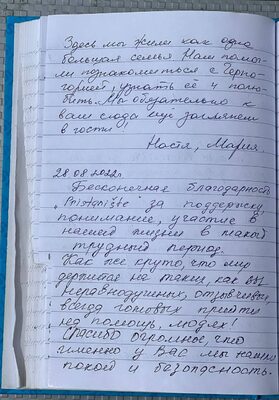 Здесь мы жили как одна
большая семья. Нам помог-
ли познакомиться с Черно-
горией, узнать её и полю-
бить. Мы обязательно к
вам сюда ещё заглянем
в гости!
Настя, Мария.
28.08.2022г.
Бесконечная благодарность
"Pristanište" за поддержку,
понимание, участие в
нашей жизни в такой
трудный период.
Как же круто, что мир
держится на таких, как вы
неравнодушных, отзывчивых,
всегда готовых прийти
на помощь, людях!
Спасибо огромное, что
именно у Вас мы нашли
покой и безопасность.